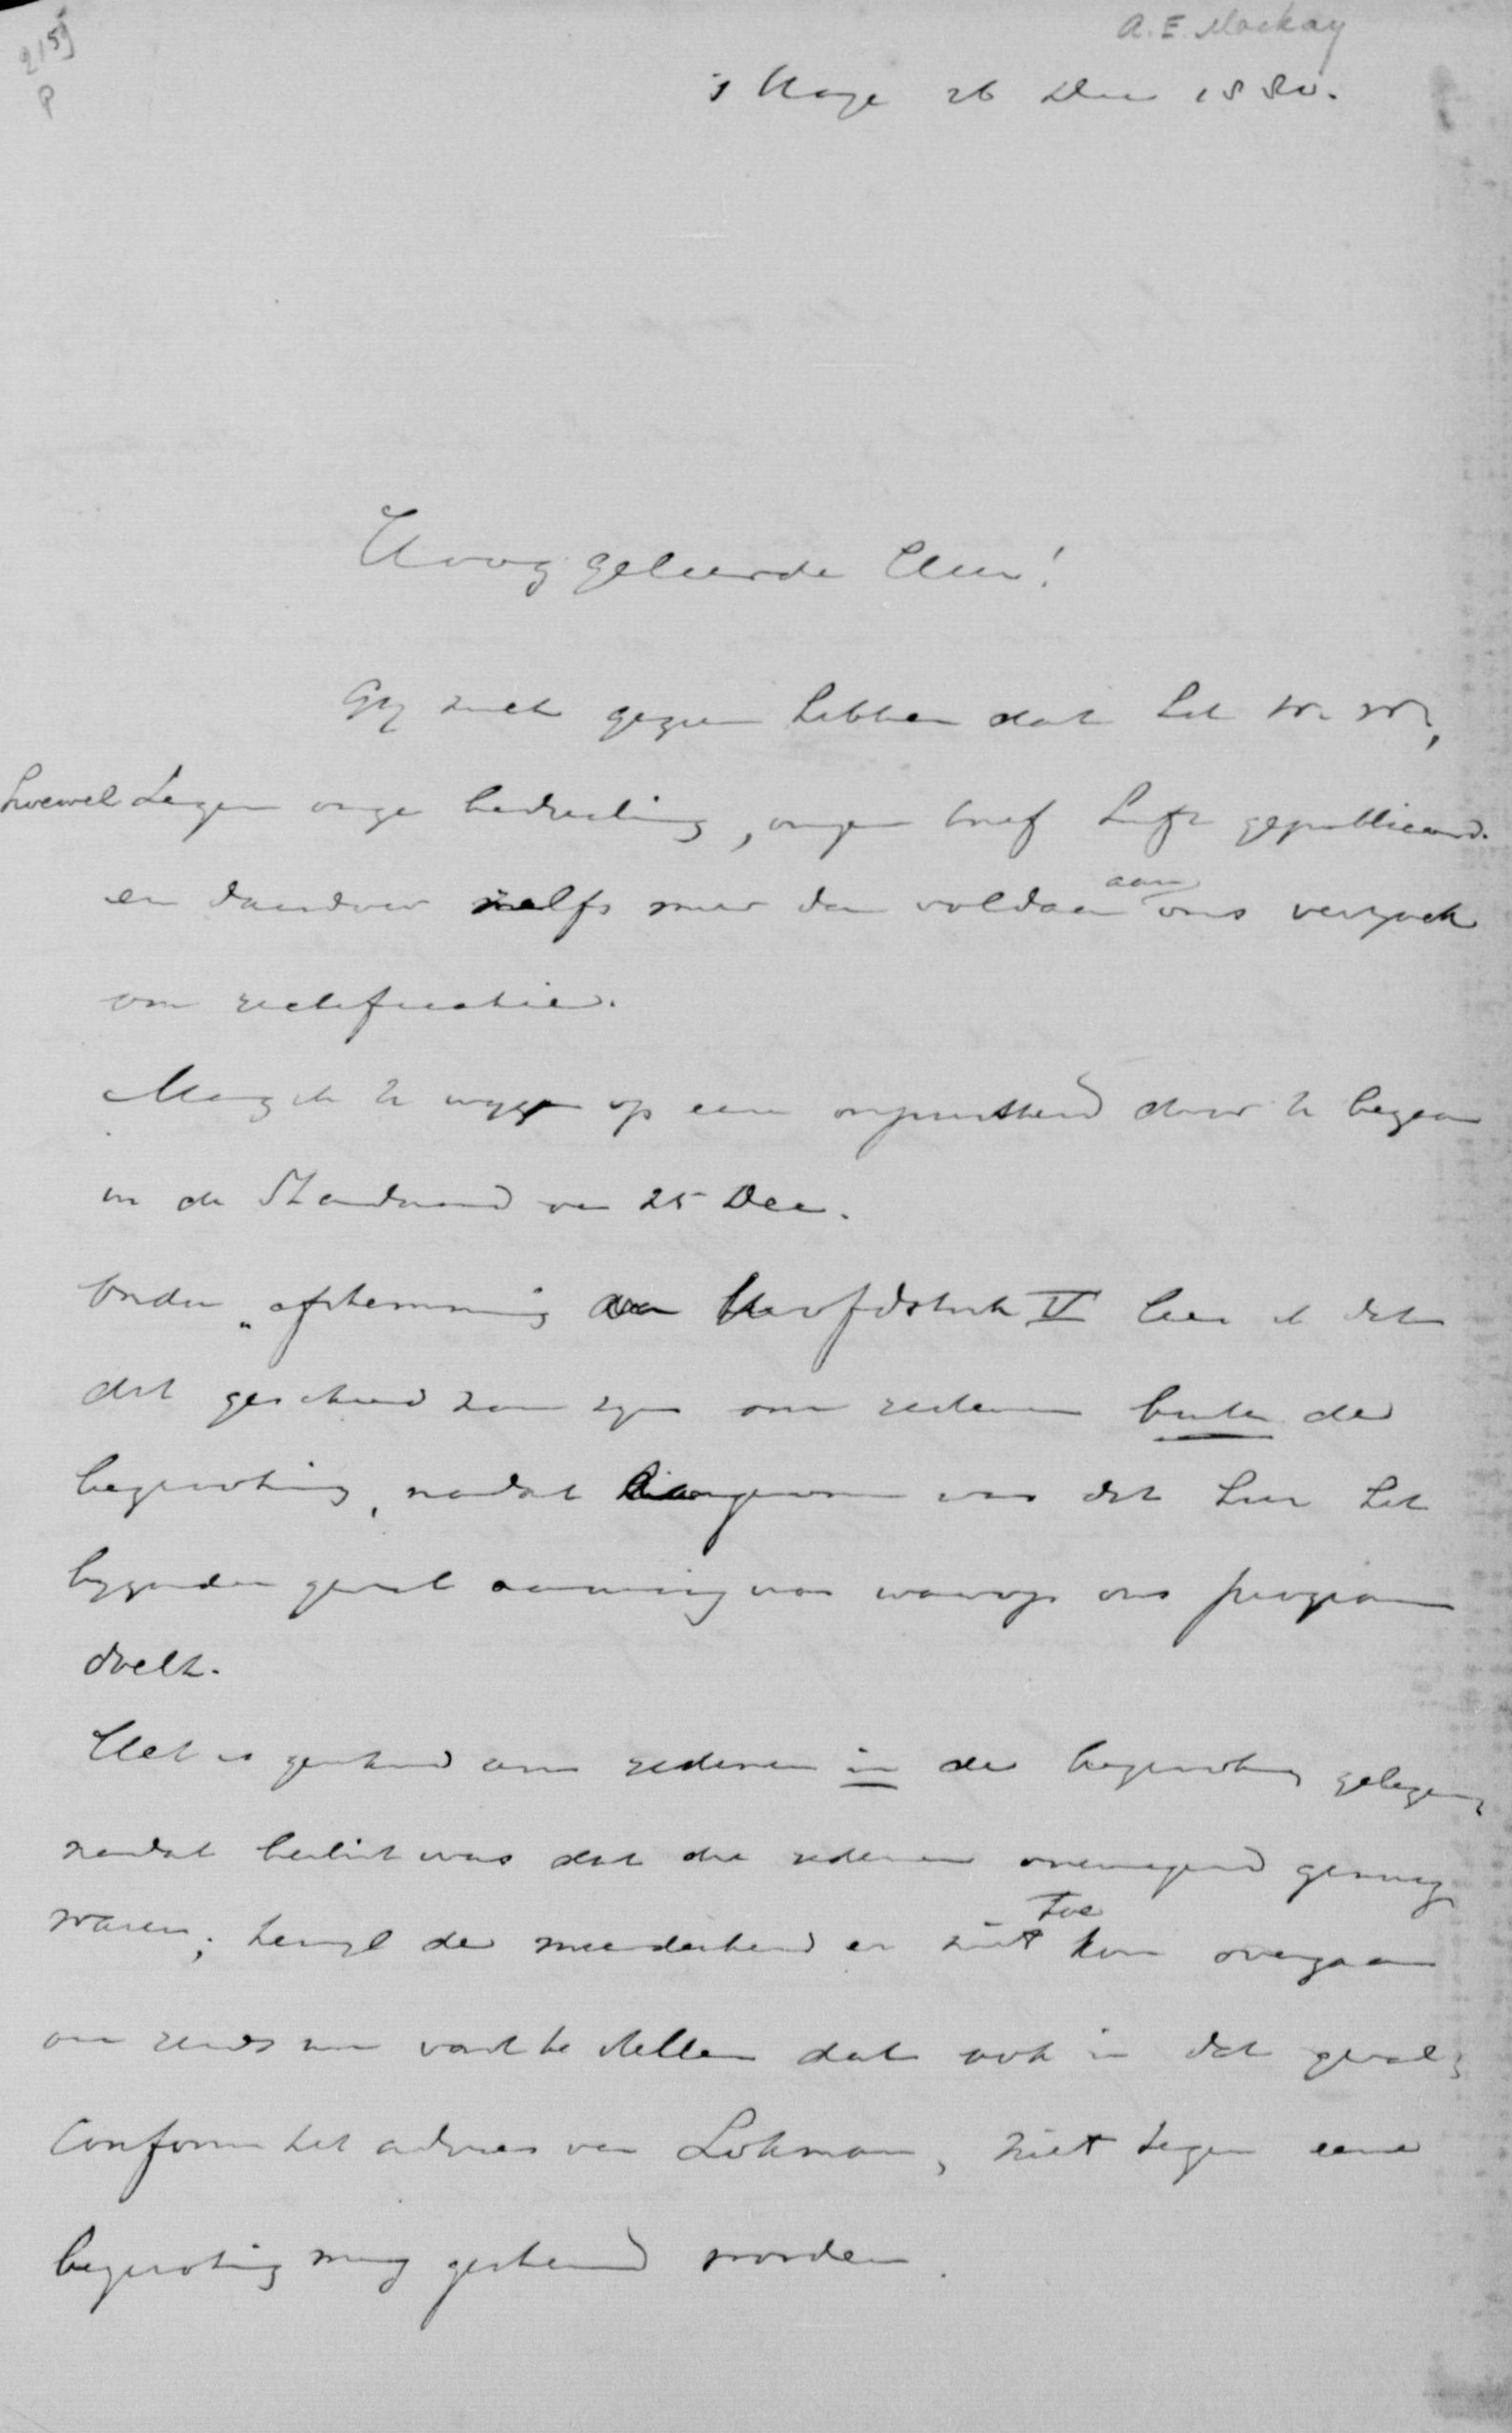 2159
P
A. E. Mackay
's Hage 26 Dec 1880.
Hooggeleerde Heer!
Gij zult gezien hebben dat het W. W.,
hoewel tegen onze bedoeling, onzen brief heeft gepubliceerd.
en daardoor zelfs meer dan voldaan aan ons verzoek
om rectificatie.
Mag ik U wijzen op eene onjuistheid door U begaan
in de Standaard van 25 Dec.
Onder „afstemming van Hoofdstuk V lees ik dat
dit geschied zou zijn om redenen buiten de
begrooting, nadat aangenomen was dat hier het
bijzonder geval aanwezig was waarop ons program
doelt.
Het is geschied om redenen in de begrooting gelegen,
nadat beslist was dat die redenen overwegend genoeg
waren; terwijl de meerderheid er niet toe kon overgaan
om reeds nu vast te stellen dat ook in dat geval,
conform het advies van Lohman, niet tegen eene
begrooting mag gestemd worden.